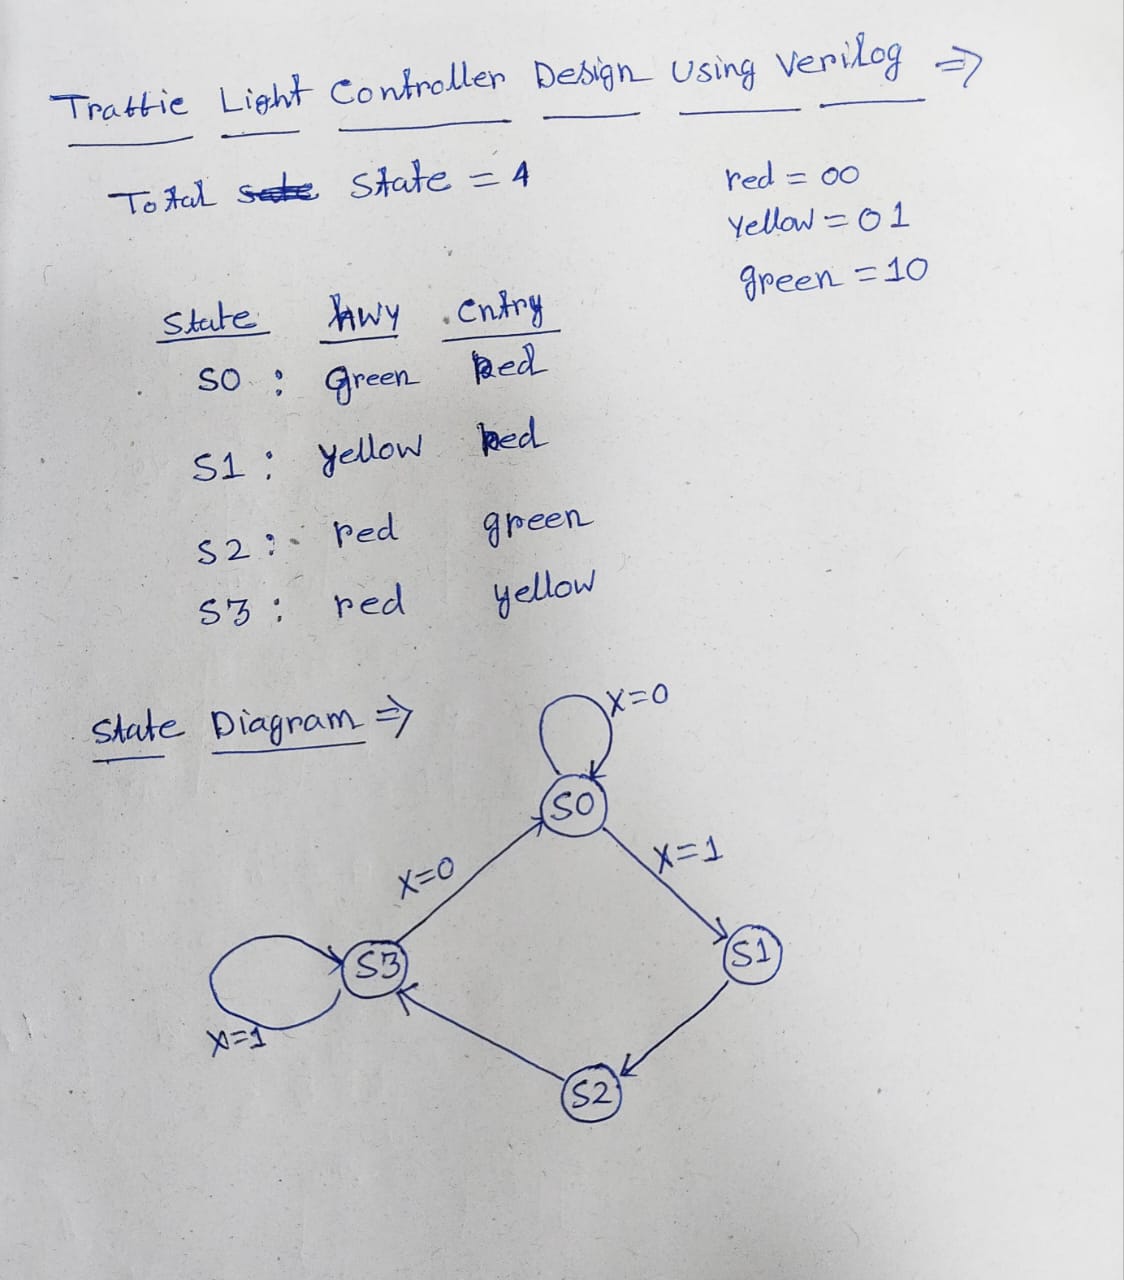 Traffic Light Controller Design Using Verilog ⇒
Total state = 4
red = 00
yellow = 01
green = 10
State hwy cntry
S0 : green Red
S1 : yellow Red
S2 : red green
S3 : red yellow
State Diagram ⇒
X=0
S0
X=1
X=0
S1
S3
X=1
S2